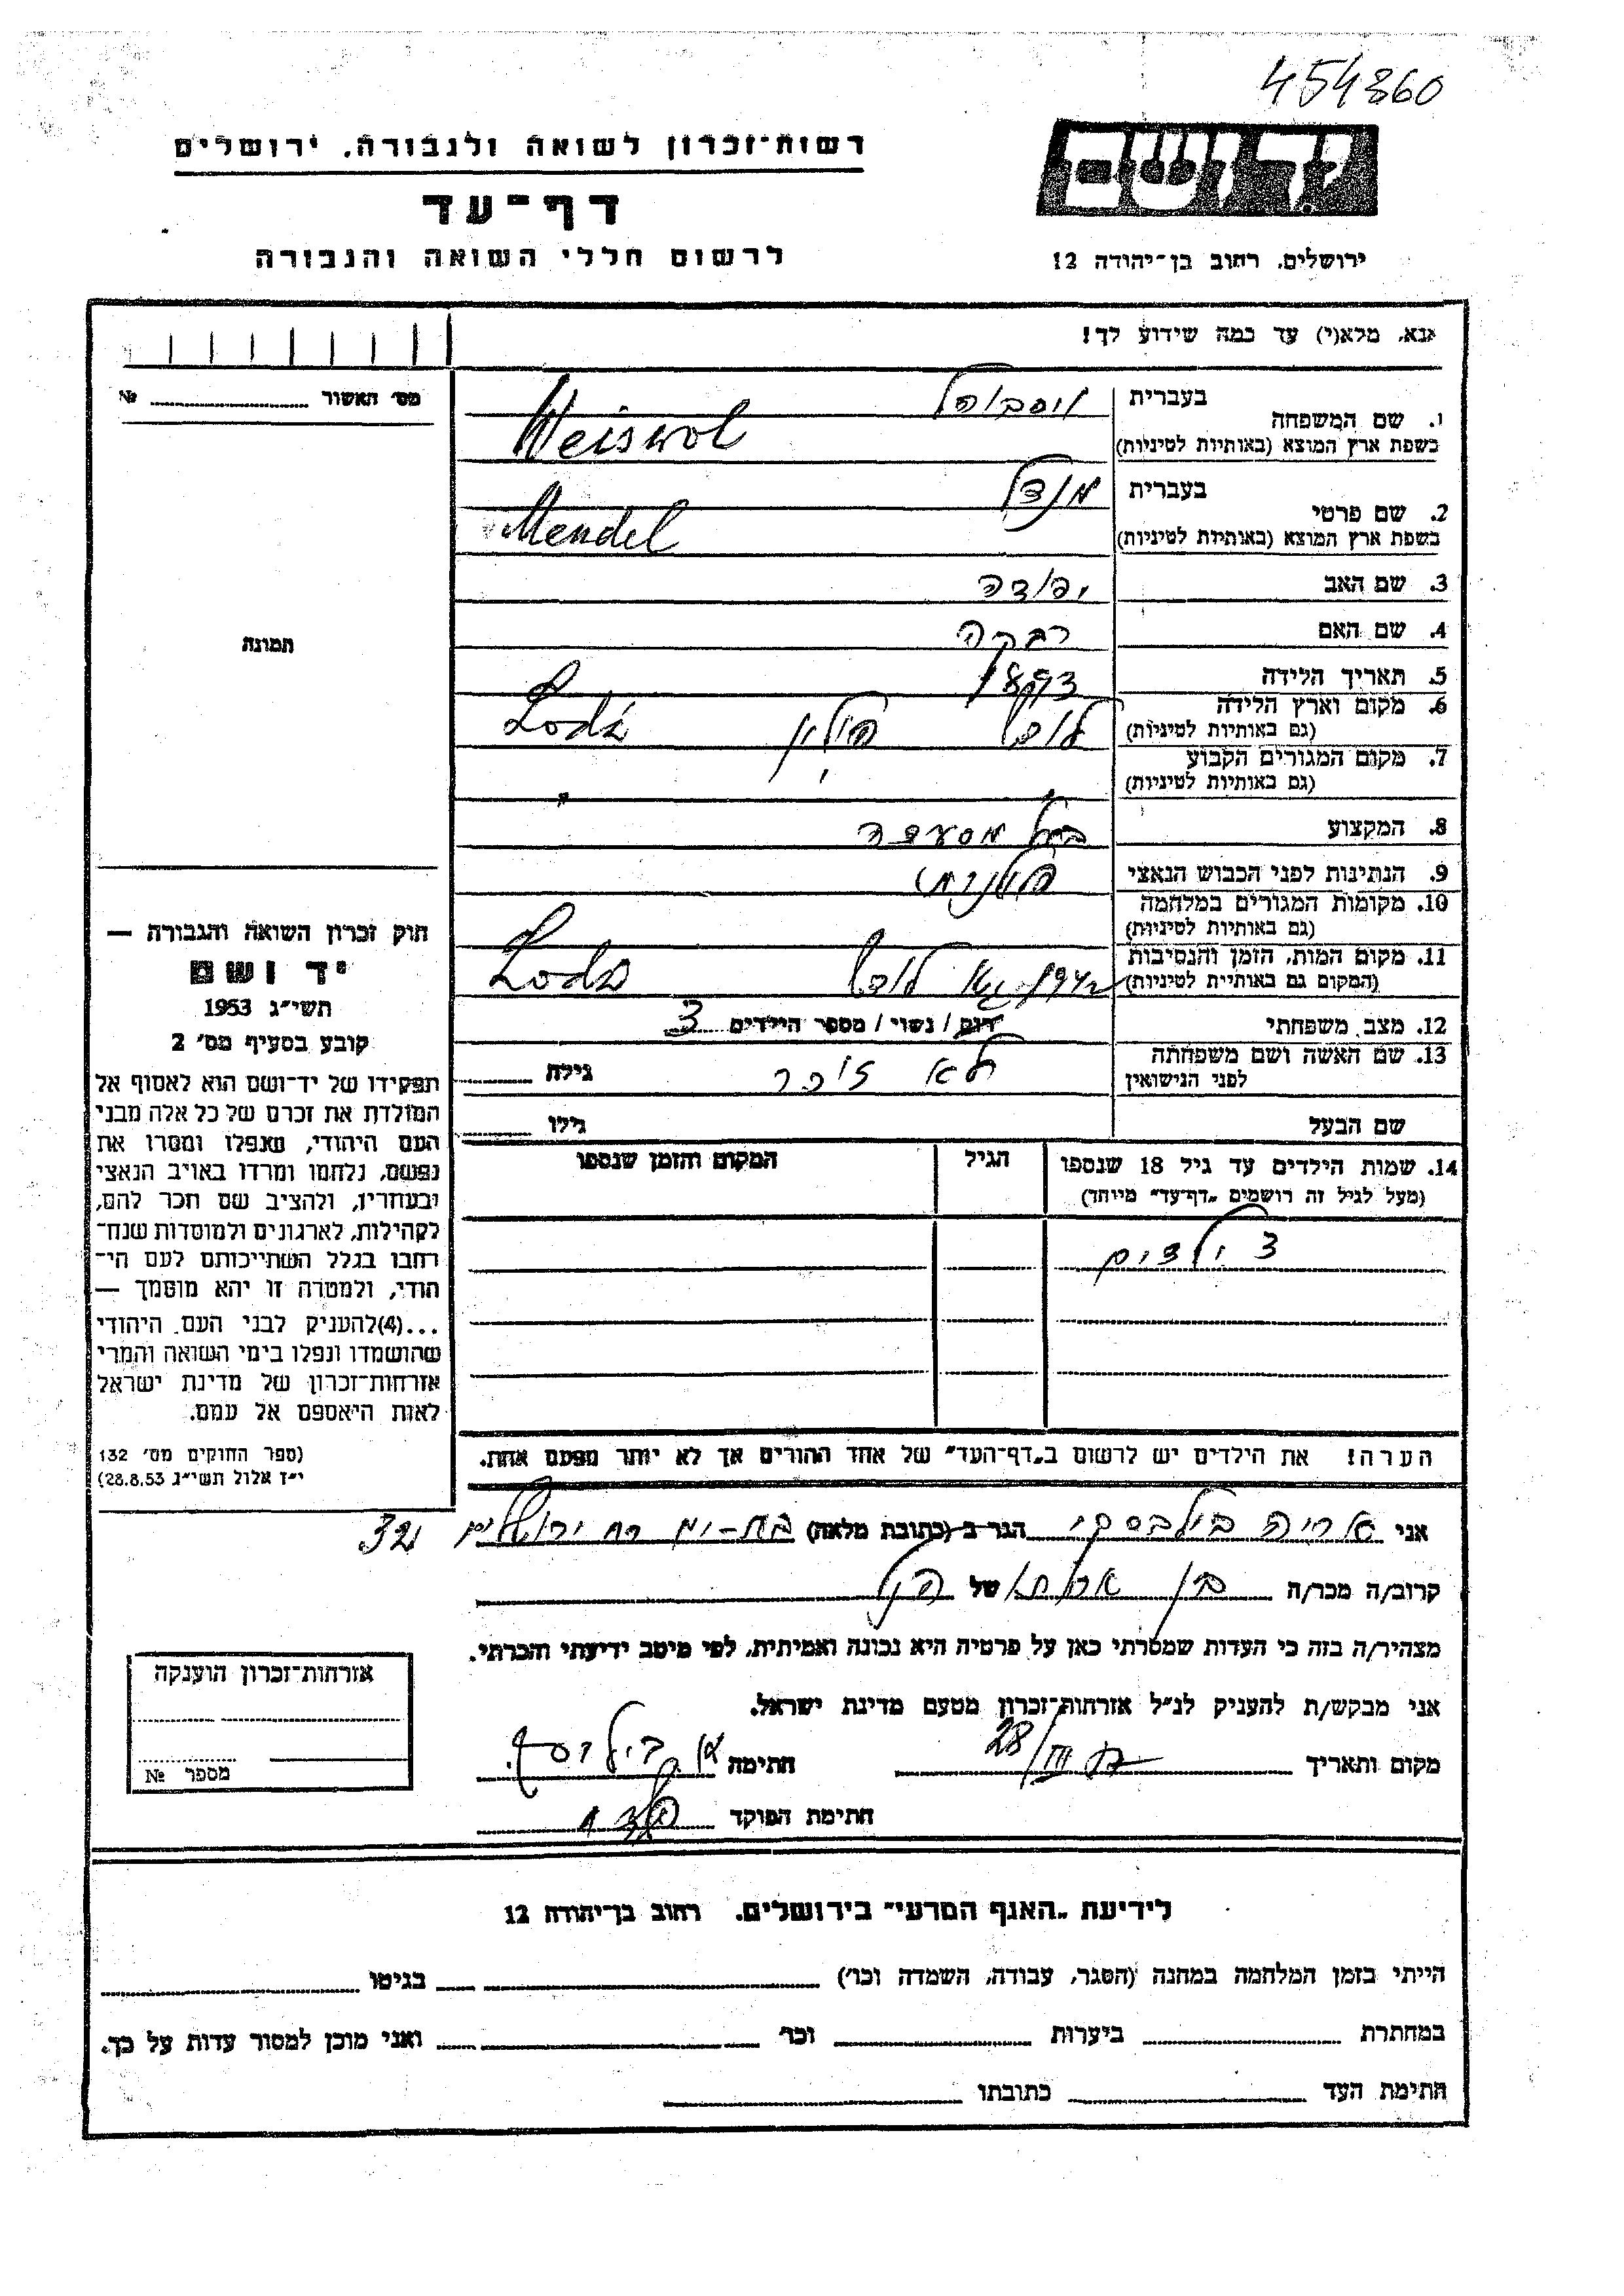 454860
רשות־זכרון לשואה ולגבורה, ירושלים
דף־עד
לרשום חללי השואה והגבורה
יד ושם
ירושלים, רחוב בן־יהודה 12
אנא, מלא(י) עד כמה שידוע לך!
מס׳ האשור № 
בעברית
1. שם המשפחה
בשפת ארץ המוצא (באותיות לטיניות) Weiswol
בעברית מנדל
2. שם פרטי
בשפת ארץ המוצא (באותיות לטיניות) Mendel
3. שם האב יהודה
4. שם האם רבקה
תמונה
5. תאריך הלידה
6. מקום וארץ הלידה לודז׳ פולין Lodź
(גם באותיות לטיניות)
7. מקום המגורים הקבוע " "
(גם באותיות לטיניות)
8. המקצוע בעל מסעדה
9. הנתינות לפני הכבוש הנאצי פולנית
10. מקומות המגורים במלחמה
(גם באותיות לטיניות)
11. מקום המות, הזמן והנסיבות לודז׳ Lodz
(המקום גם באותיית לטיניות)
12. מצב משפחתי רווק / נשוי / מספר הילדים 3
13. שם האשה ושם משפחתה לא זוכר גילה
לפני הנישואין
שם הבעל גילו
14. שמות הילדים עד גיל 18 שנספו הגיל המקום והזמן שנספו
(מעל לגיל זה רושמים „דף־עד״ מיוחד)
3 ילדים
הערה! את הילדים יש לרשום ב„דף־העד״ של אחד ההורים אך לא יותר מפעם אחת.
חוק זכרון השואה והגבורה —
יד ושם
תשי״ג 1953
קובע בסעיף מס׳ 2
תפקידו של יד־ושם הוא לאסוף אל
המולדת את זכרם של כל אלה מבני
העם היהודי, שנפלו ומסרו את
נפשם, נלחמו ומרדו באויב הנאצי
ובעוזריו, ולהציב שם וזכר להם,
לקהילות, לארגונים ולמוסדות שנח־
רחבו בגלל השתייכותם לעם הי־
הודי, ולמטרה זו יהא מוסמך —
...(4)להעניק לבני העם היהודי
שהושמדו ונפלו בימי השואה והמרי
אזרחות־זכרון של מדינת ישראל
לאות היאספם אל עמם.
(ספר החוקים מס׳ 132
י״ז אלול תשי״ג 28.8.53)
אני אריה בילבסקי הגר ב (כתובת מלאה) בת-ים רח ירושלים 32
קרוב/ה מכר/ה בן אחות של הנ״ל
מצהיר/ה בזה כי העדות שמסרתי כאן על פרטיה היא נכונה ואמיתית, לפי מיטב ידיעתי והכרתי.
אני מבקש/ת להעניק לנ״ל אזרחות־זכרון מטעם מדינת ישראל.
מקום ותאריך 28/III חתימה
חתימת הפוקד
אזרחות־זכרון הוענקה
מספר №
לידיעת „האגף המדעי״ בירושלים, רחוב בן־יהודה 12
הייתי בזמן המלחמה במחנה (הסגר, עבודה, השמדה וכו׳) בגיטו
במחתרת ביערות וכו׳ ואני מוכן למסור עדות על כך.
חתימת העד כתובתו